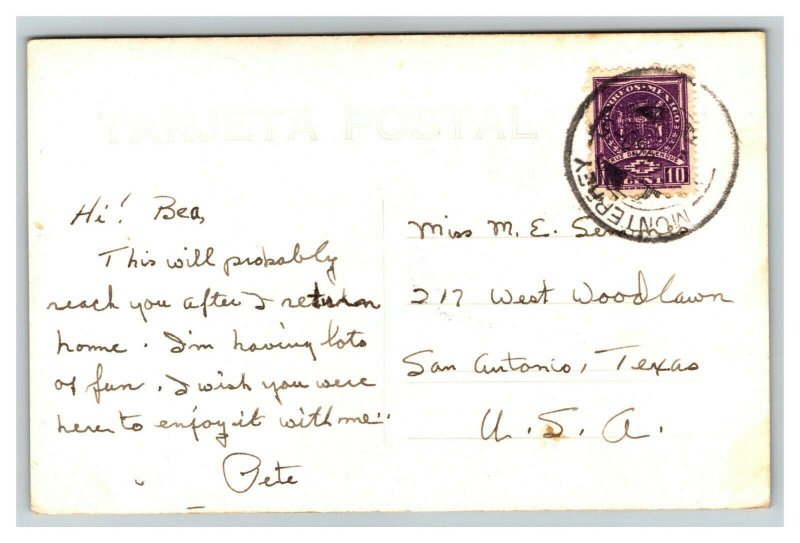 TARJETA POSTAL
CORREOS MEXICO
CRUZ DEL PALENQUE
10
MONTERREY
Hi! Bea,
This will probably
reach you after I return
home. I'm having lots
of fun. I wish you were
here to enjoy it with me.
Pete
Miss M. E.
217 West Woodlawn
San Antonio, Texas
U. S. A.